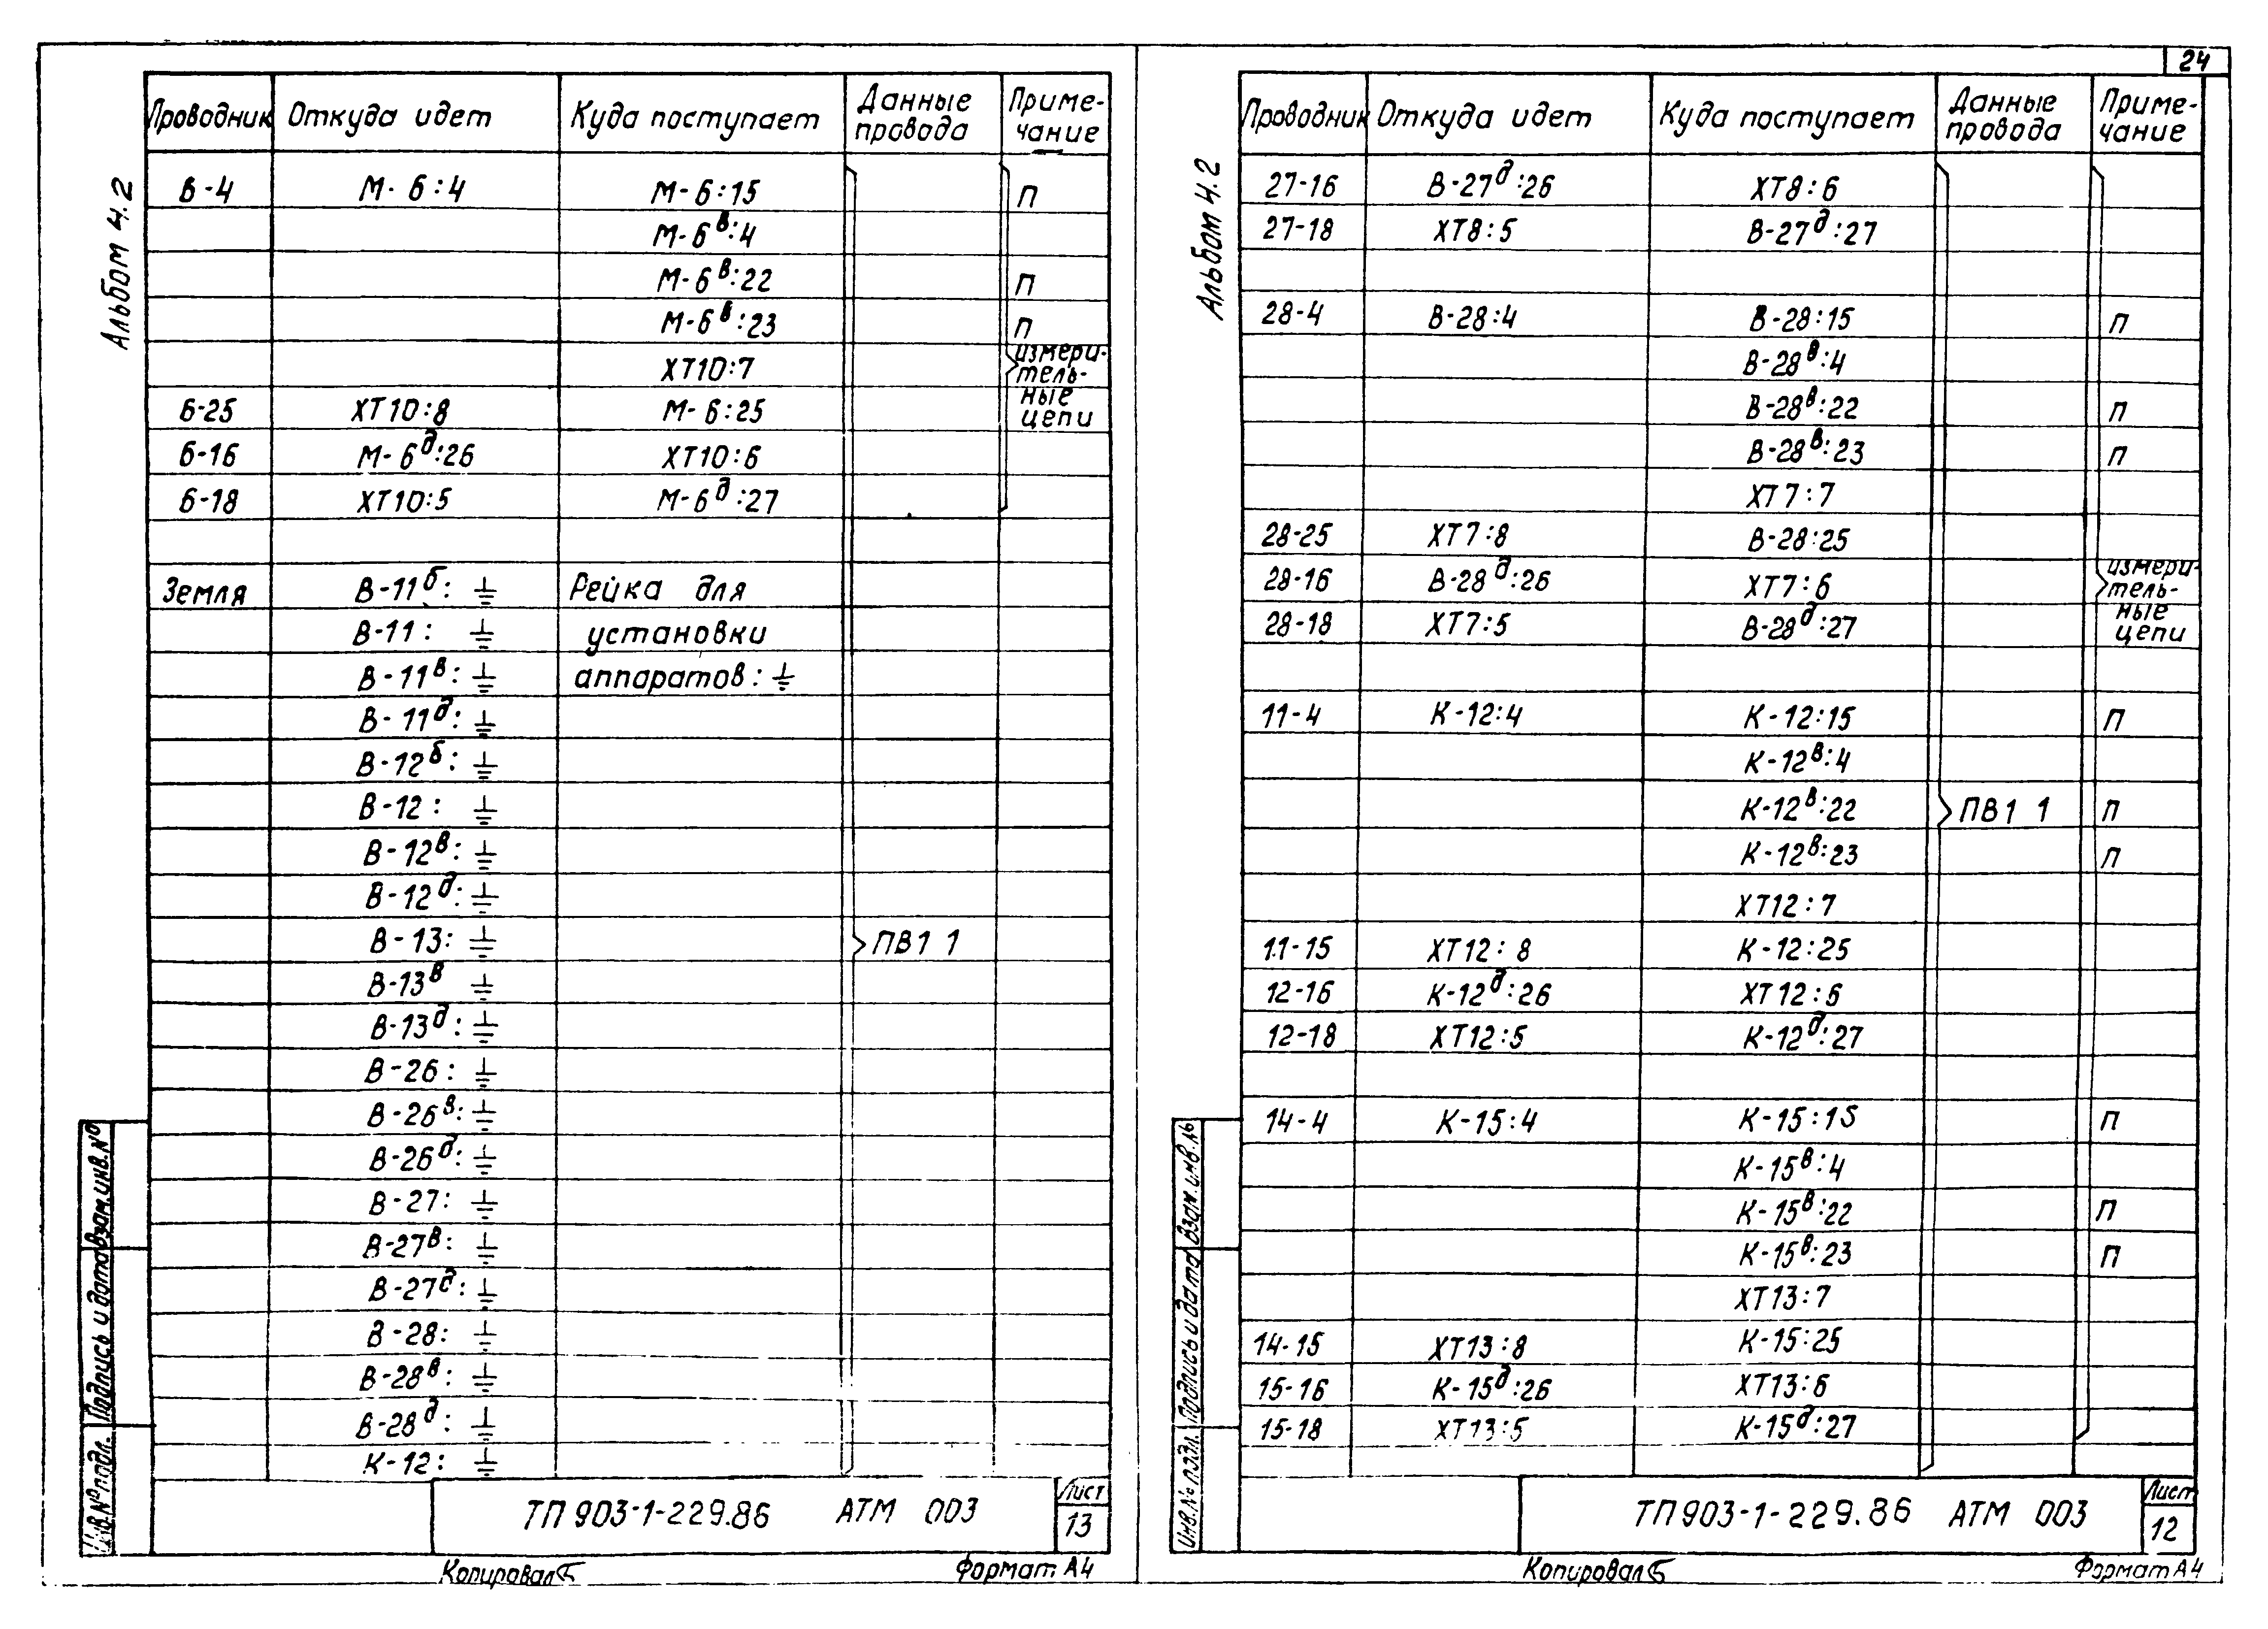 24
Альбом 4.2
Проводник Откуда идет Куда поступает Данные провода Приме-чание
В-4 М-6:4 М-6:15 П
М-6в:4
М-6в:22 П
М-6в:23 П
ХТ10:7 измери-
тель-
ные
6-25 ХТ10:8 М-6:25 цепи
6-16 М-6д:26 ХТ10:6
6-18 ХТ10:5 М-6д:27
Земля В-11б: ⏚ Рейка для
В-11: ⏚ установки
В-11в: ⏚ аппаратов: ⏚
В-11д: ⏚
В-12б: ⏚
В-12: ⏚
В-12в: ⏚
В-12д: ⏚
В-13: ⏚ ПВ1 1
В-13в ⏚
В-13д: ⏚
В-26: ⏚
В-26в: ⏚
В-26д: ⏚
В-27: ⏚
В-27в: ⏚
В-27д: ⏚
В-28: ⏚
В-28в: ⏚
В-28д: ⏚
К-12: ⏚
Взам.инв.№
Подпись и дата
Инв.№подл.
ТП 903-1-229.86 АТМ 003
Лист
13
Копировал
Формат А4
Альбом 4.2
Проводник Откуда идет Куда поступает Данные провода Приме-чание
27-16 В-27д:26 ХТ8:6
27-18 ХТ8:5 В-27д:27
28-4 В-28:4 В-28:15 П
В-28в:4
В-28в:22 П
В-28в:23 П
ХТ7:7
28-25 ХТ7:8 В-28:25
28-16 В-28д:26 ХТ7:6 измери-
тель-
ные
28-18 ХТ7:5 В-28д:27 цепи
11-4 К-12:4 К-12:15 П
К-12в:4
К-12в:22 ПВ1 1 П
К-12в:23 П
ХТ12:7
11-15 ХТ12:8 К-12:25
12-16 К-12д:26 ХТ12:6
12-18 ХТ12:5 К-12д:27
14-4 К-15:4 К-15:15 П
К-15в:4
К-15в:22 П
К-15в:23 П
ХТ13:7
14-15 ХТ13:8 К-15:25
15-16 К-15д:26 ХТ13:6
15-18 ХТ13:5 К-15д:27
Взам.инв.№
Подпись и дата
Инв.№ подл.
ТП 903-1-229.86 АТМ 003
Лист
12
Копировал
Формат А4